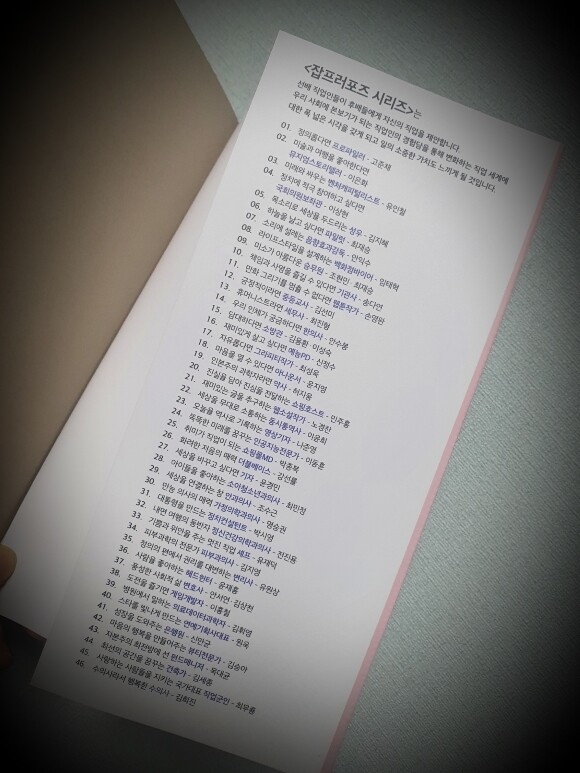 <잡프러포즈 시리즈>는
선배 직업인들이 후배들에게 자신의 직업을 제안합니다.
우리 사회에 본보기가 되는 직업인의 경험담을 통해 변화하는 직업 세계에
대한 폭 넓은 시각을 갖게 되고 일의 소중한 가치도 느끼게 될 것입니다.
01. 정의롭다면 프로파일러 - 고준채
02. 미술과 여행을 좋아한다면
뮤지엄스토리텔러 - 이은화
03. 미래와 싸우는 벤처캐피털리스트 - 유인철
04. 정치에 적극 참여하고 싶다면
국회의원보좌관 - 이상현
05. 목소리로 세상을 두드리는 성우 - 김지혜
06. 하늘을 날고 싶다면 파일럿 - 최재승
07. 소리에 설레는 음향효과감독 - 안익수
08. 라이프스타일을 설계하는 백화점바이어 - 임태혁
09. 미소가 아름다운 승무원 - 조현민·최재승
10. 책임과 사명을 즐길 수 있다면 기관사 - 송다연
11. 만화 그리기를 멈출 수 없다면 웹툰작가 - 손영완
12. 긍정적이라면 중등교사 - 김선미
13. 휴머니스트라면 세무사 - 최진형
14. 우리 인체가 궁금하다면 한의사 - 안수봉
15. 담대하다면 소방관 - 김용환·이성숙
16. 재미있게 살고 싶다면 예능PD - 신정수
17. 자유롭다면 그라피티작가 - 최성욱
18. 마음을 열 수 있다면 아나운서 - 윤지영
19. 인본주의 과학자라면 약사 - 허지웅
20. 진실을 담아 진심을 전달하는 쇼핑호스트 - 민주홍
21. 재미있는 글을 추구하는 웹소설작가 - 노경찬
22. 세상을 무대로 소통하는 동시통역사 - 이윤희
23. 오늘을 역사로 기록하는 영상기자 - 나준영
24. 똑똑한 미래를 꿈꾸는 인공지능전문가 - 이동훈
25. 취미가 직업이 되는 쇼핑몰MD - 박종복
26. 화려한 저음의 매력 더블베이스 - 김선률
27. 세상을 바꾸고 싶다면 기자 - 윤경민
28. 아이들을 좋아하는 소아청소년과의사 - 최민정
29. 세상을 연결하는 창 안과의사 - 조수근
30. 만능 의사의 매력 가정의학과의사 - 명승권
31. 대통령을 만드는 정치컨설턴트 - 박시영
32. 내면 여행의 동반자 정신건강의학과의사 - 진진용
33. 기쁨과 위안을 주는 멋진 직업 셰프 - 유재덕
34. 피부과학의 전문가 피부과의사 - 김지영
35. 정의의 편에서 권리를 대변하는 변리사 - 유원상
36. 사람을 좋아하는 헤드헌터 - 윤재홍
37. 풍성한 사회적 삶 변호사 - 안서연·김상천
38. 도전을 즐기면 게임개발자 - 이홍철
39. 병원에서 일하는 의료데이터과학자 - 김휘영
40. 스타를 빛나게 만드는 연예기획사대표 - 원욱
41. 성장을 도와주는 은행원 - 신만균
42. 마음의 행복을 만들어주는 뷰티전문가 - 김승아
43. 자본주의 최전방에 선 펀드매니저 - 목대균
44. 최선의 공간을 꿈꾸는 건축가 - 김세종
45. 사랑하는 사람들을 지키는 국가대표 직업군인 - 최무룡
46. 수의사라서 행복한 수의사 - 김희진